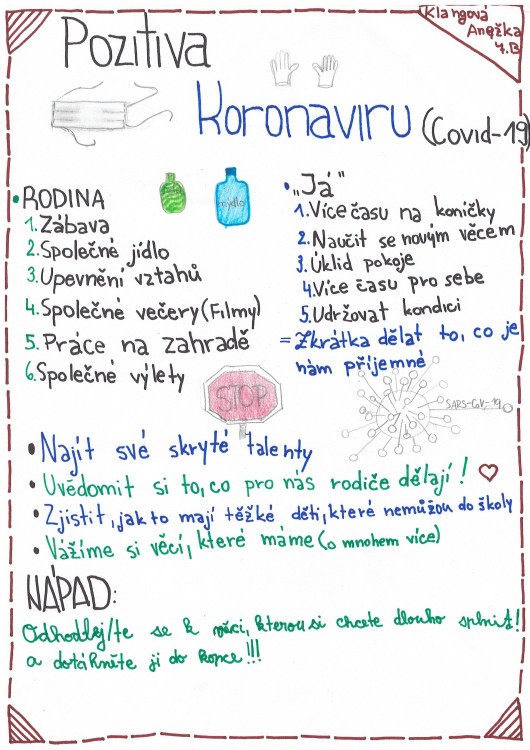 Klangová
Anežka
4.B
Pozitiva
Koronaviru (Covid-19)
• RODINA
1. Zábava
2. Společné jídlo
3. Upevnění vztahů
4. Společné večery (Filmy)
5. Práce na zahradě
6. Společné výlety
mýdlo
• „Já"
1. Více času na koníčky
2. Naučit se novým věcem
3. Úklid pokoje
4. Více času pro sebe
5. Udržovat kondici
= Zkrátka dělat to, co je
nám příjemné
STOP
SARS-CoV-19
• Najít své skryté talenty
• Uvědomit si to, co pro nás rodiče dělají! ♡
• Zjistit, jak to mají těžké děti, které nemůžou do školy
• Vážíme si věcí, které máme (o mnohem více)
NÁPAD:
Odhodlej/te se k věci, kterou si chcete dlouho splnit!
a dotáhněte ji do konce!!!